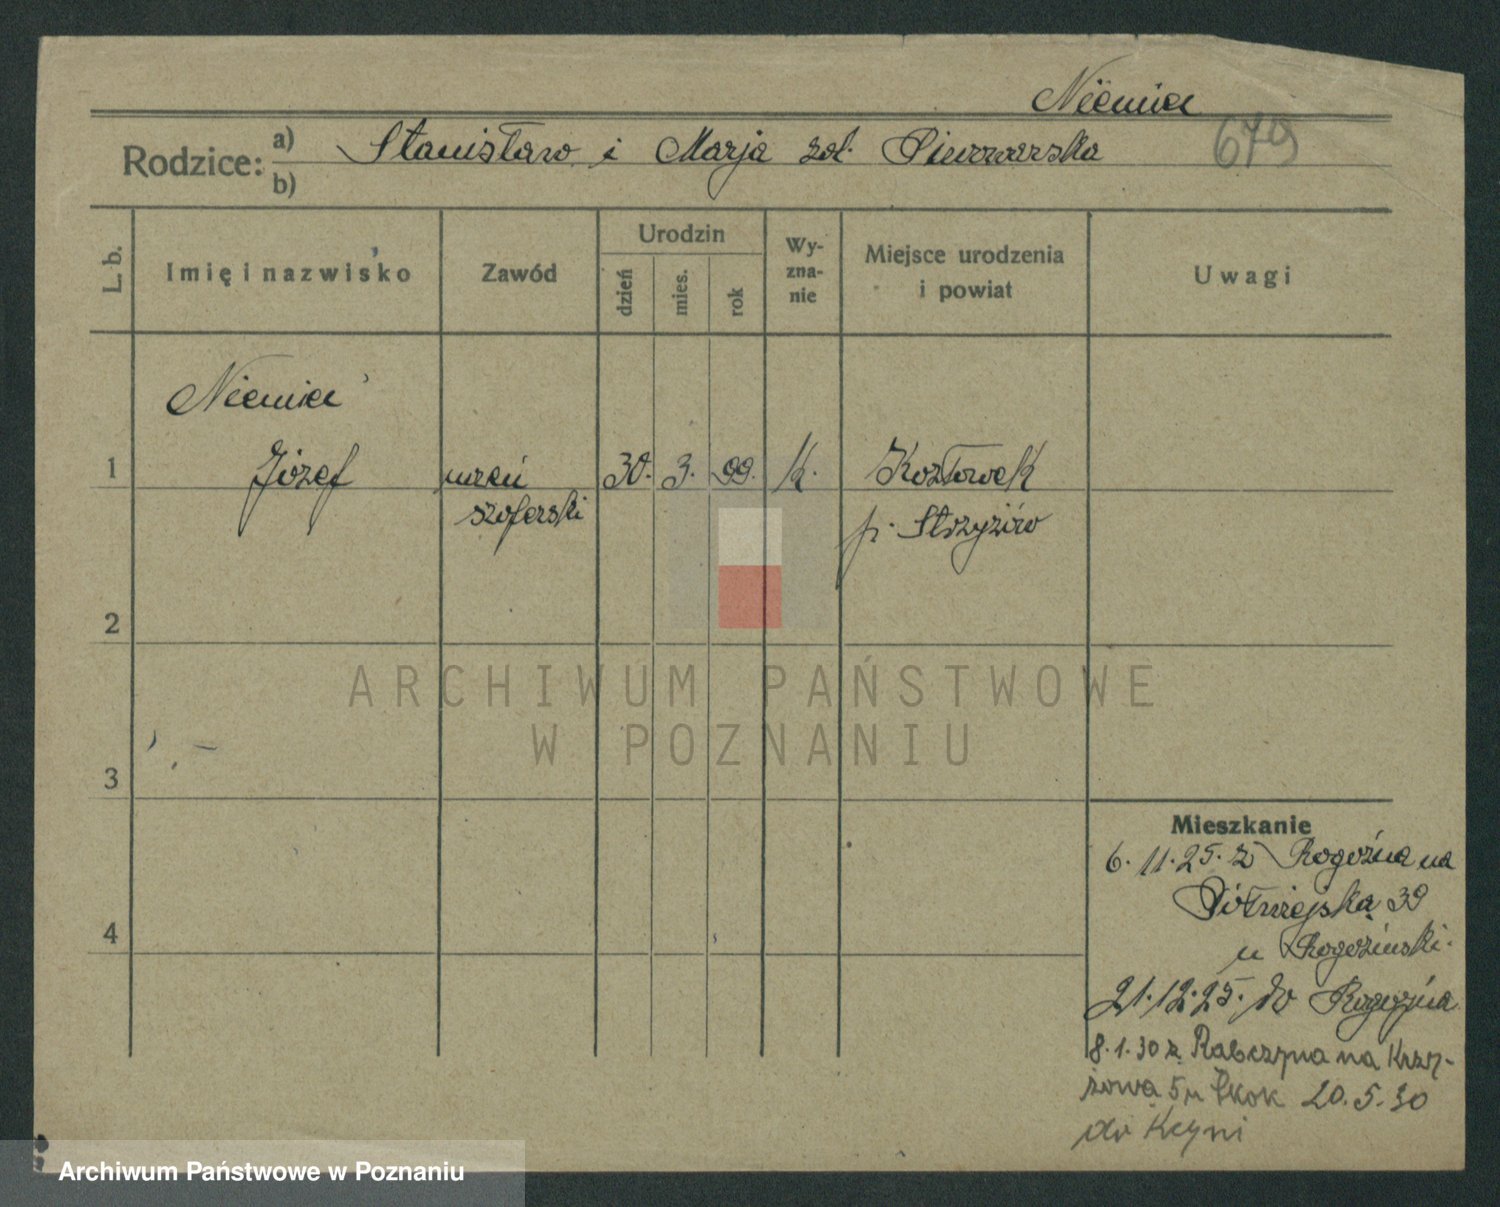 Niemiec
679
Rodzice: a) Stanisław i Marja zd. Piwowarska
b)
L. b.
Imię i nazwisko
Zawód
Urodzin
dzień
mies.
rok
Wy-
zna-
nie
Miejsce urodzenia
i powiat
Uwagi
Niemiec
1 Józef uczeń 30. 3. 99. k. Kozłowek
szoferski p. Strzyżów
2
ARCHIWUM PAŃSTWOWE
W POZNANIU
3
4
Mieszkanie
6.11.25. z Rogoźna na
Półwiejską 39
u Rogoziński.
21.12.25. do Rogoźna
8.1.30 z Rabczyna na Krzy-
żową 5 u Skok 20.5.30
do Kcyni
Archiwum Państwowe w Poznaniu